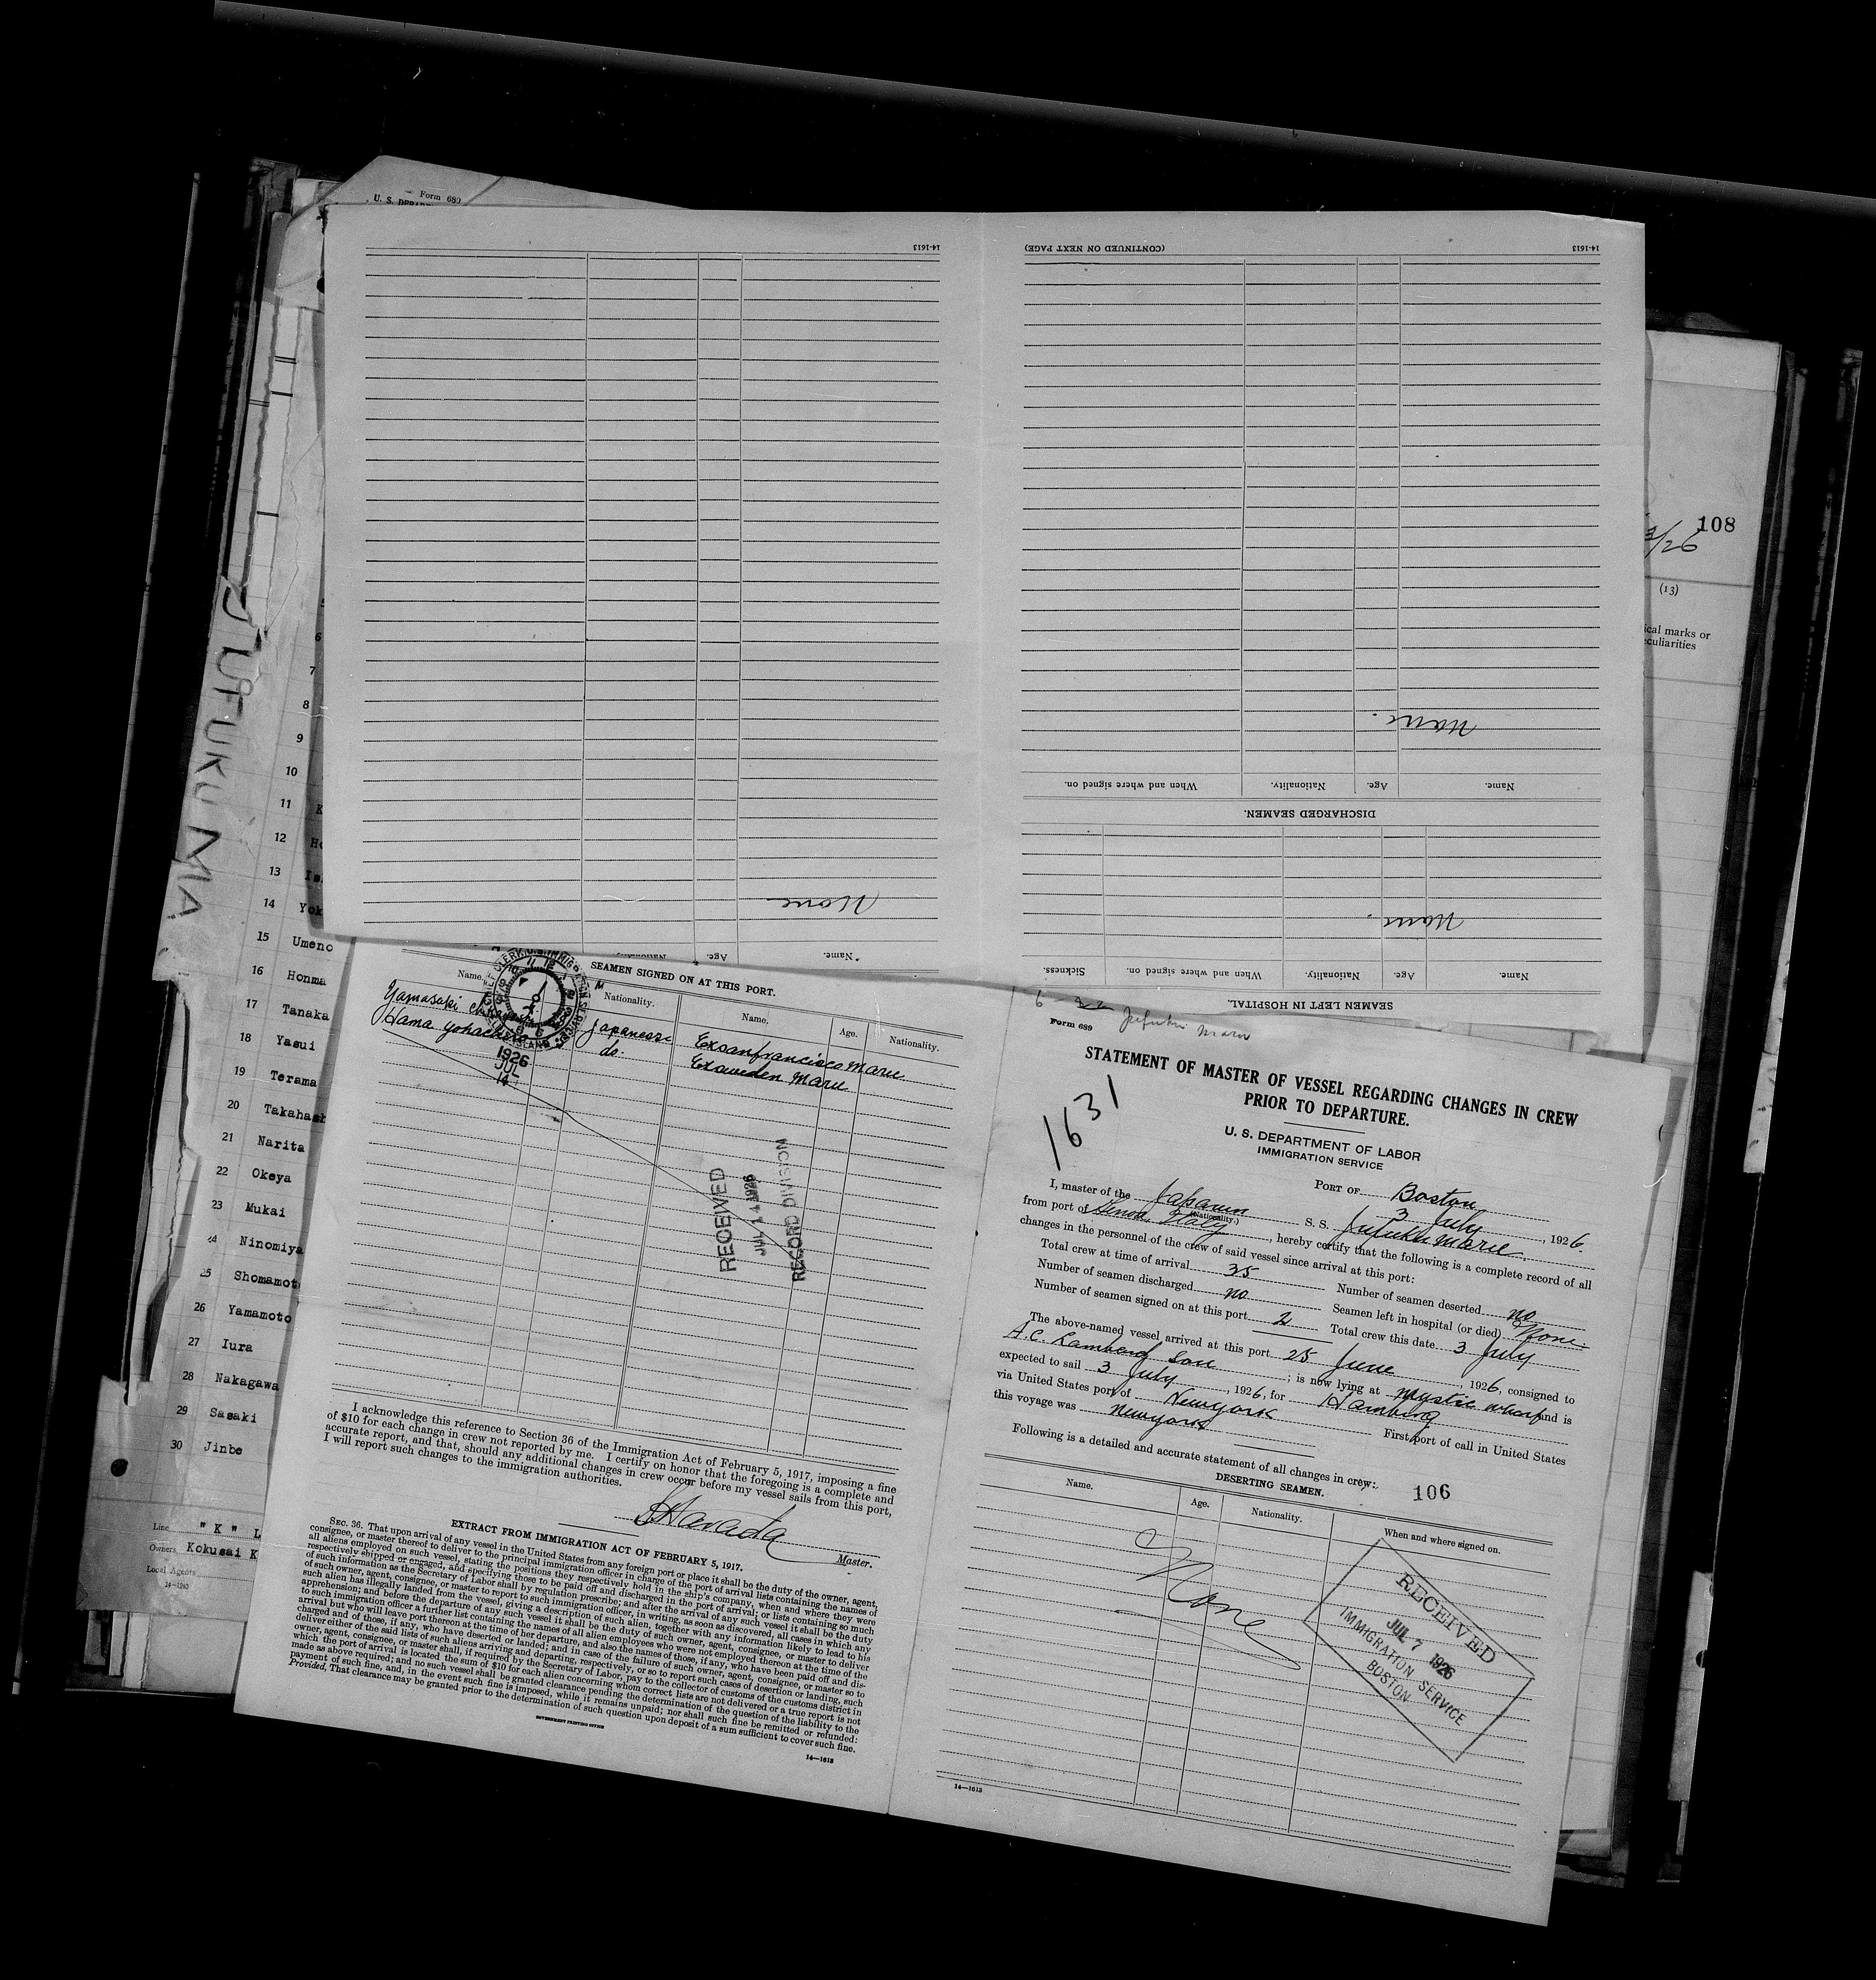 Form 689
U. S. DEPAR
14-1613
(CONTINUED ON NEXT PAGE)
14-1613
None.
Name.
Age.
Nationality.
When and where signed on.
DISCHARGED SEAMEN.
None.
None
Name.
Age.
Nationality.
Name.
Age.
Nationality.
When and where signed on.
Sickness.
SEAMEN LEFT IN HOSPITAL.
108
3/26
(13)
ical marks or
eculiarities
JUFUKU MA
6
7
8
9
10
11 K
12 Ho
13
14 Yok
15 Umeno
16 Honma
17 Tanaka
18 Yasui
19 Terama
20 Takahash
21 Narita
22 Okeya
23 Mukai
24 Ninomiya
25 Shomamot
26 Yamamoto
27 Iura
28 Nakagawa
29 Sasaki
30 Jinbo
Line "K" L
Owners Kokusai K
Local Agents
14-1240
SEAMEN SIGNED ON AT THIS PORT.
Name. Nationality. Name. Age. Nationality.
Yamasaki Japanese Exsanfrancisco Maru
Hama Yohachiro do. Exsweden Maru
1926
JUL
14
RECEIVED
JUL 14 1926
RECORD DIVISION
I acknowledge this reference to Section 36 of the Immigration Act of February 5, 1917, imposing a fine
of $10 for each change in crew not reported by me. I certify on honor that the foregoing is a complete and
accurate report, and that, should any additional changes in crew occur before my vessel sails from this port,
I will report such changes to the immigration authorities.
Harada
Master.
EXTRACT FROM IMMIGRATION ACT OF FEBRUARY 5, 1917.
SEC. 36. That upon arrival of any vessel in the United States from any foreign port or place it shall be the duty of the owner, agent,
consignee, or master thereof to deliver to the principal immigration officer in charge of the port of arrival lists containing the names of
all aliens employed on such vessel, stating the positions they respectively hold in the ship's company, when and where they were
respectively shipped or engaged, and specifying those to be paid off and discharged in the port of arrival; or lists containing so much
of such information as the Secretary of Labor shall by regulation prescribe; and after the arrival of any such vessel it shall be the duty
of such owner, agent, consignee, or master to report to such immigration officer, in writing, as soon as discovered, all cases in which any
such alien has illegally landed from the vessel, giving a description of such alien, together with any information likely to lead to his
apprehension; and before the departure of any such vessel it shall be the duty of such owner, agent, consignee, or master to deliver
to such immigration officer a further list containing the names of all alien employees who were not employed thereon at the time of the
arrival but who will leave port thereon at the time of her departure, and also the names of those, if any, who have been paid off and dis-
charged and of those, if any, who have deserted or landed; and in case of the failure of such owner, agent, consignee, or master so to
deliver either of the said lists of such aliens arriving and departing, respectively, or so to report such cases of desertion or landing, such
owner, agent, consignee, or master shall, if required by the Secretary of Labor, pay to the collector of customs of the customs district in
which the port of arrival is located the sum of $10 for each alien concerning whom correct lists are not delivered or a true report is not
made as above required; and no such vessel shall be granted clearance pending the determination of the question of the liability to the
payment of such fine, and, in the event such fine is imposed, while it remains unpaid; nor shall such fine be remitted or refunded:
Provided, That clearance may be granted prior to the determination of such question upon deposit of a sum sufficient to cover such fine.
GOVERNMENT PRINTING OFFICE
14—1613
Jufuku Maru
Form 689
STATEMENT OF MASTER OF VESSEL REGARDING CHANGES IN CREW
PRIOR TO DEPARTURE.
1631
U. S. DEPARTMENT OF LABOR
IMMIGRATION SERVICE
PORT OF Boston
3 July, 1926.
I, master of the Japanese (Nationality.) S. S. Jufuku Maru,
from port of Genoa, Italy, hereby certify that the following is a complete record of all
changes in the personnel of the crew of said vessel since arrival at this port:
Total crew at time of arrival 35 Number of seamen deserted no
Number of seamen discharged no Seamen left in hospital (or died) None.
Number of seamen signed on at this port 2 Total crew this date 3 July
The above-named vessel arrived at this port 25 June, 1926, consigned to
A.C. Lombard Son; is now lying at Mystic Wharf and is
expected to sail 3 July, 1926, for Hamburg
via United States port of Newyork First port of call in United States
this voyage was Newyork
Following is a detailed and accurate statement of all changes in crew:
106
DESERTING SEAMEN.
Name. Age. Nationality. When and where signed on.
None
RECEIVED
JUL 7 1926
IMMIGRATION SERVICE
BOSTON
14—1613